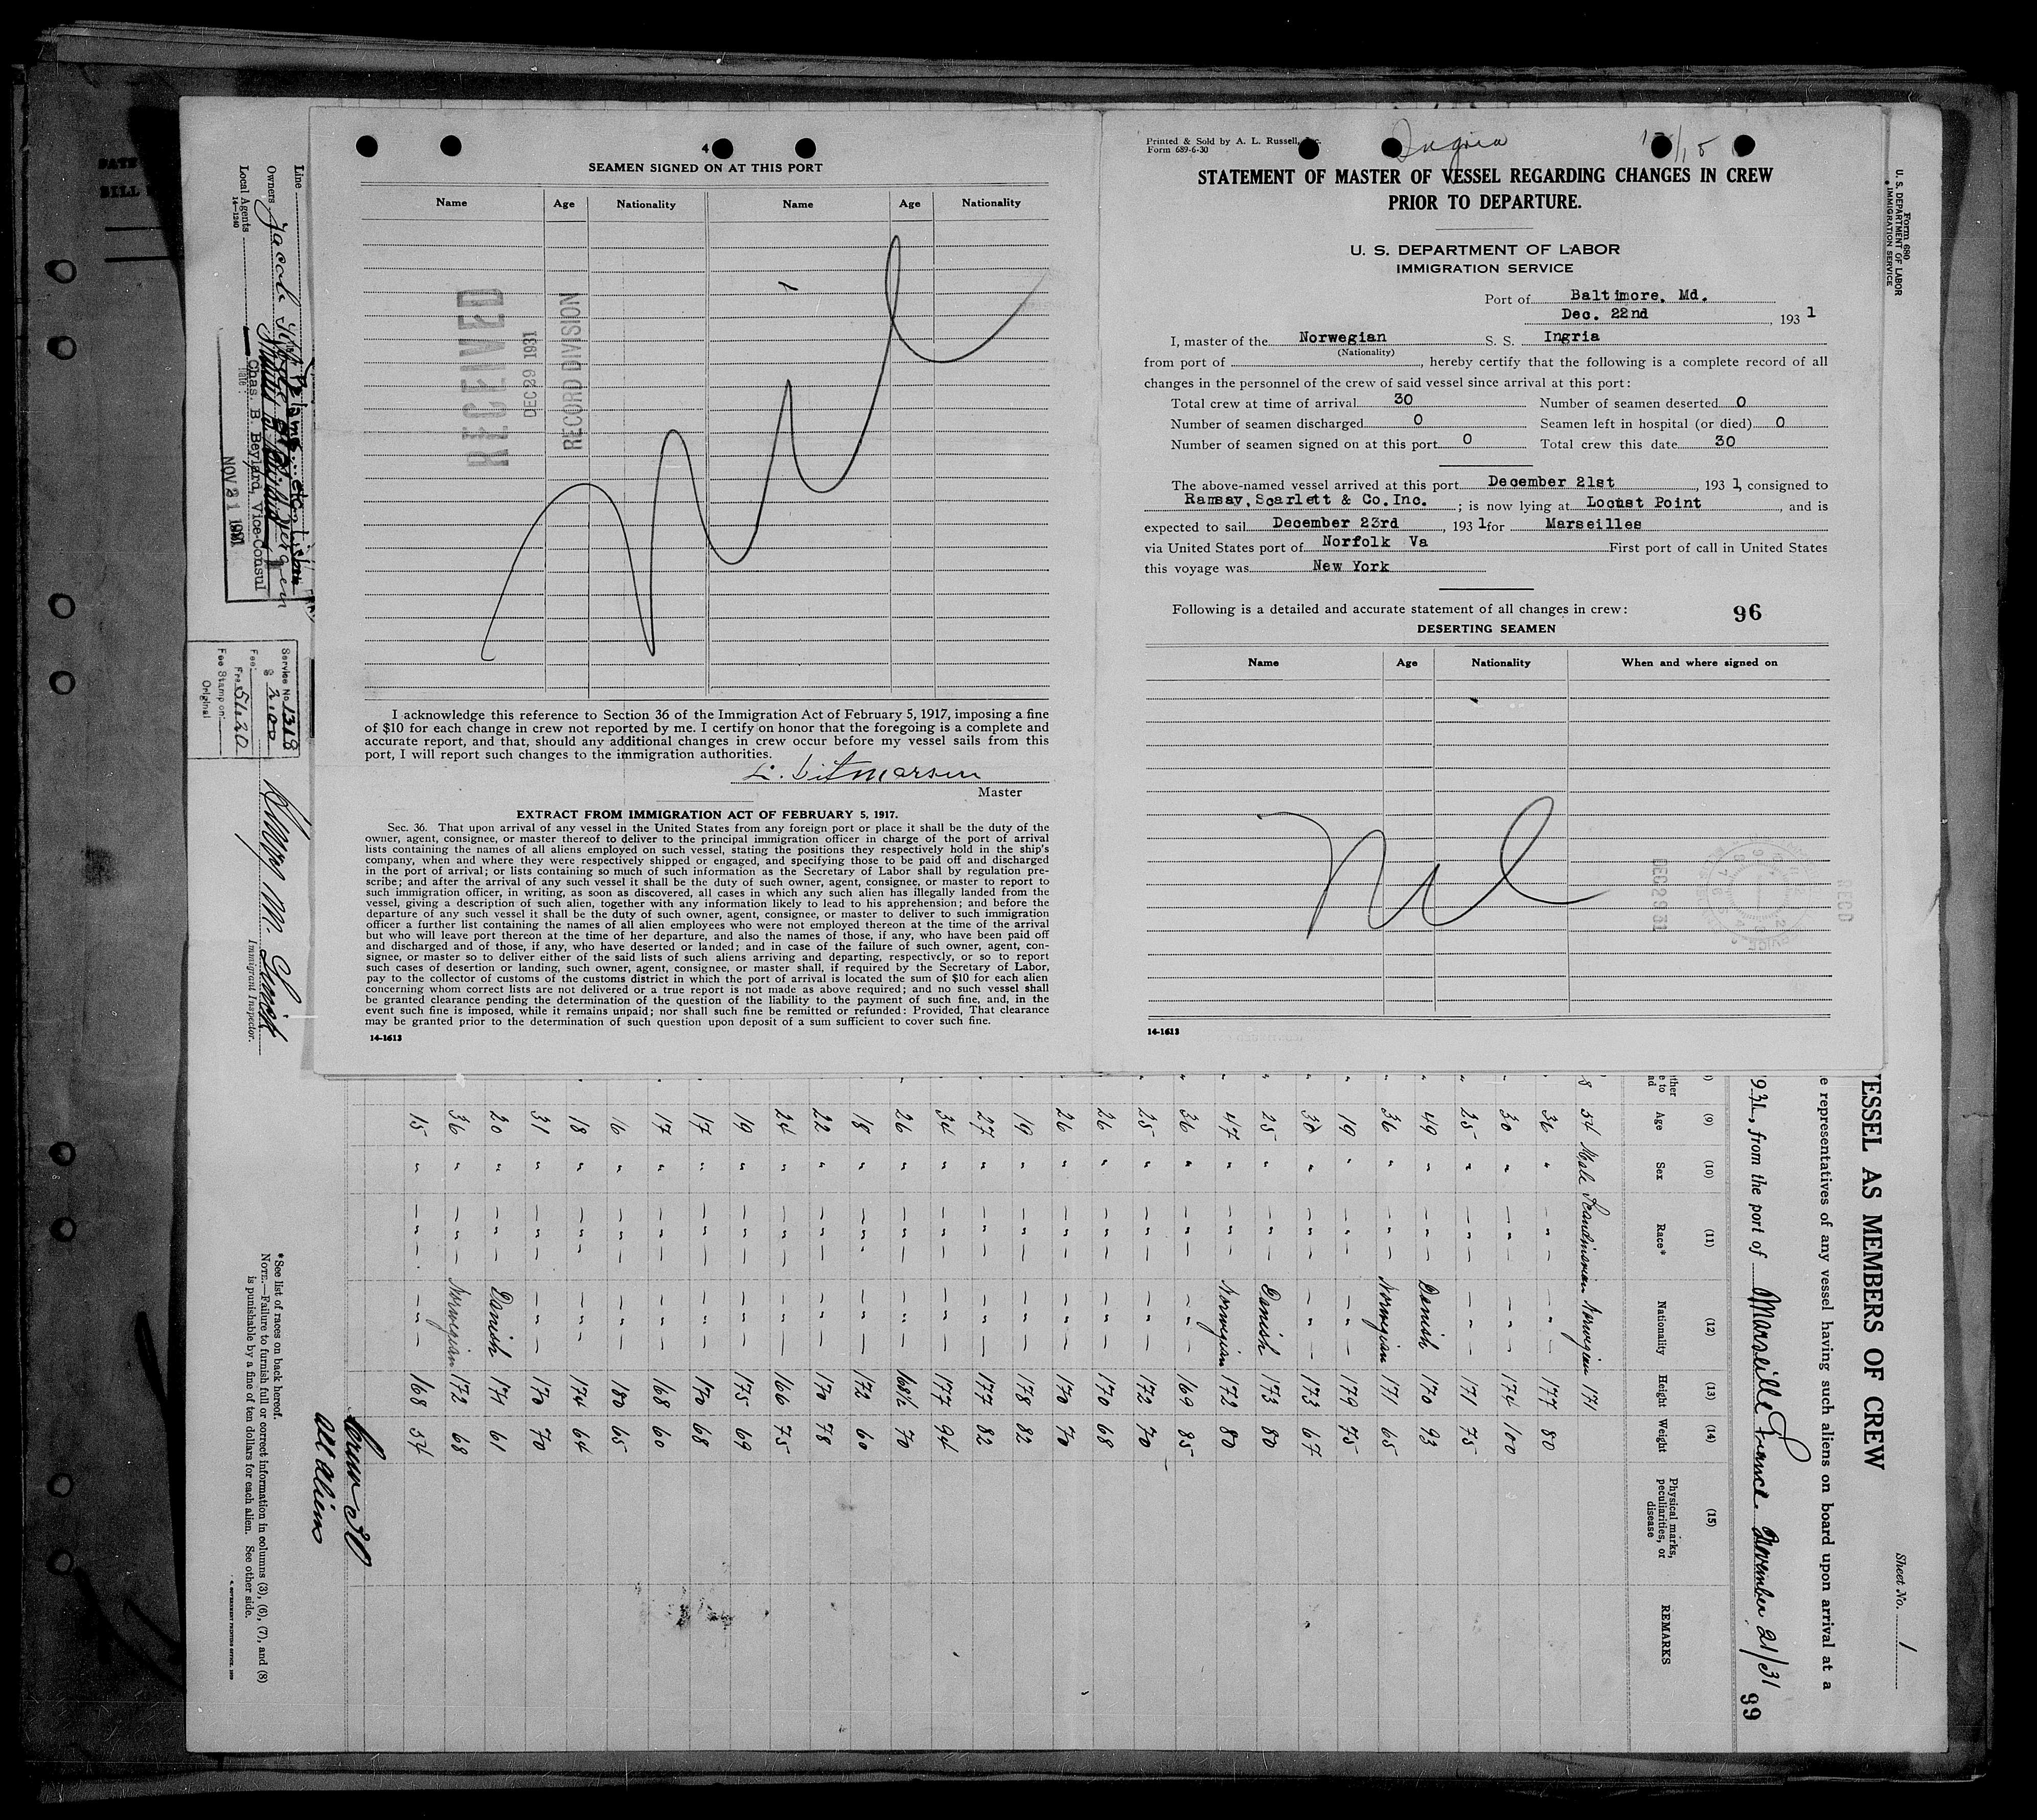 4
SEAMEN SIGNED ON AT THIS PORT
Name Age Nationality Name Age Nationality
RECEIVED
DEC 29 1931
RECORD DIVISION
Nil
I acknowledge this reference to Section 36 of the Immigration Act of February 5, 1917, imposing a fine
of $10 for each change in crew not reported by me. I certify on honor that the foregoing is a complete and
accurate report, and that, should any additional changes in crew occur before my vessel sails from this
port, I will report such changes to the immigration authorities.
Master
EXTRACT FROM IMMIGRATION ACT OF FEBRUARY 5, 1917.
Sec. 36. That upon arrival of any vessel in the United States from any foreign port or place it shall be the duty of the
owner, agent, consignee, or master thereof to deliver to the principal immigration officer in charge of the port of arrival
lists containing the names of all aliens employed on such vessel, stating the positions they respectively hold in the ship's
company, when and where they were respectively shipped or engaged, and specifying those to be paid off and discharged
in the port of arrival; or lists containing so much of such information as the Secretary of Labor shall by regulation pre-
scribe; and after the arrival of any such vessel it shall be the duty of such owner, agent, consignee, or master to report to
such immigration officer, in writing, as soon as discovered, all cases in which any such alien has illegally landed from the
vessel, giving a description of such alien, together with any information likely to lead to his apprehension; and before the
departure of any such vessel it shall be the duty of such owner, agent, consignee, or master to deliver to such immigration
officer a further list containing the names of all alien employees who were not employed thereon at the time of the arrival
but who will leave port thereon at the time of her departure, and also the names of those, if any, who have been paid off
and discharged and of those, if any, who have deserted or landed; and in case of the failure of such owner, agent, con-
signee, or master so to deliver either of the said lists of such aliens arriving and departing, respectively, or so to report
such cases of desertion or landing, such owner, agent, consignee, or master shall, if required by the Secretary of Labor,
pay to the collector of customs of the customs district in which the port of arrival is located the sum of $10 for each alien
concerning whom correct lists are not delivered or a true report is not made as above required; and no such vessel shall
be granted clearance pending the determination of the question of the liability to the payment of such fine, and, in the
event such fine is imposed, while it remains unpaid; nor shall such fine be remitted or refunded: Provided, That clearance
may be granted prior to the determination of such question upon deposit of a sum sufficient to cover such fine.
14-1613
Printed & Sold by A. L. Russell, Inc.
Form 689-6-30
Ingria
STATEMENT OF MASTER OF VESSEL REGARDING CHANGES IN CREW
PRIOR TO DEPARTURE.
U. S. DEPARTMENT OF LABOR
IMMIGRATION SERVICE
Port of Baltimore, Md.
Dec. 22nd, 1931
I, master of the Norwegian S. S. Ingria
(Nationality)
from port of , hereby certify that the following is a complete record of all
changes in the personnel of the crew of said vessel since arrival at this port:
Total crew at time of arrival 30 Number of seamen deserted 0
Number of seamen discharged 0 Seamen left in hospital (or died) 0
Number of seamen signed on at this port 0 Total crew this date 30
The above-named vessel arrived at this port December 21st, 1931, consigned to
Ramsay, Scarlett & Co. Inc. ; is now lying at Locust Point, and is
expected to sail December 23rd, 1931 for Marseilles
via United States port of Norfolk Va First port of call in United States
this voyage was New York
Following is a detailed and accurate statement of all changes in crew: 96
DESERTING SEAMEN
Name Age Nationality When and where signed on
Nil
DEC 29 31
REC'D
14-1613
Form 680
U. S. DEPARTMENT OF LABOR
IMMIGRATION SERVICE
Sheet No. 1
ESSEL AS MEMBERS OF CREW
e representatives of any vessel having such aliens on board upon arrival at a
931, from the port of Marseille France November 21/31
99
(9) (10) (11) (12) (13) (14) (15)
Age Sex Race* Nationality Height Weight Physical marks, peculiarities, or disease REMARKS
54 Male Scandinavian Norwegian 171
36 " " " 177 80
30 " " " 174 100
25 " " " 171 75
49 " " Danish 170 93
36 " " Norwegian 171 65
19 " " " 179 75
38 " " " 173 67
25 " " Danish 173 80
47 " " Norwegian 172 80
36 " " " 169 85
25 " " " 172 70
26 " " " 170 68
26 " " " 170 70
19 " " " 178 82
27 " " " 177 82
34 " " " 177 94
26 " " " 168½ 70
18 " " " 172 60
22 " " " 170 78
24 " " " 166 75
19 " " " 175 69
17 " " " 170 68
17 " " " 168 60
16 " " " 180 65
18 " " " 174 64
31 " " " 170 70
20 " " Danish 171 61
36 " " Norwegian 172 68
15 " " " 168 54
Crew 30
all aliens
*See list of races on back hereof.
NOTE.—Failure to furnish full or correct information in columns (3), (6), (7), and (8)
is punishable by a fine of ten dollars for each alien. See other side.
Line
Owners Jacob
Local Agents
14-1240
Chas. B. Beylard, Vice-Consul
Date
NOV 21 1931
Service No. 1318
Fee $ 2.00
Frs 51.20
Fee Stamp on
Original
Immigrant Inspector.